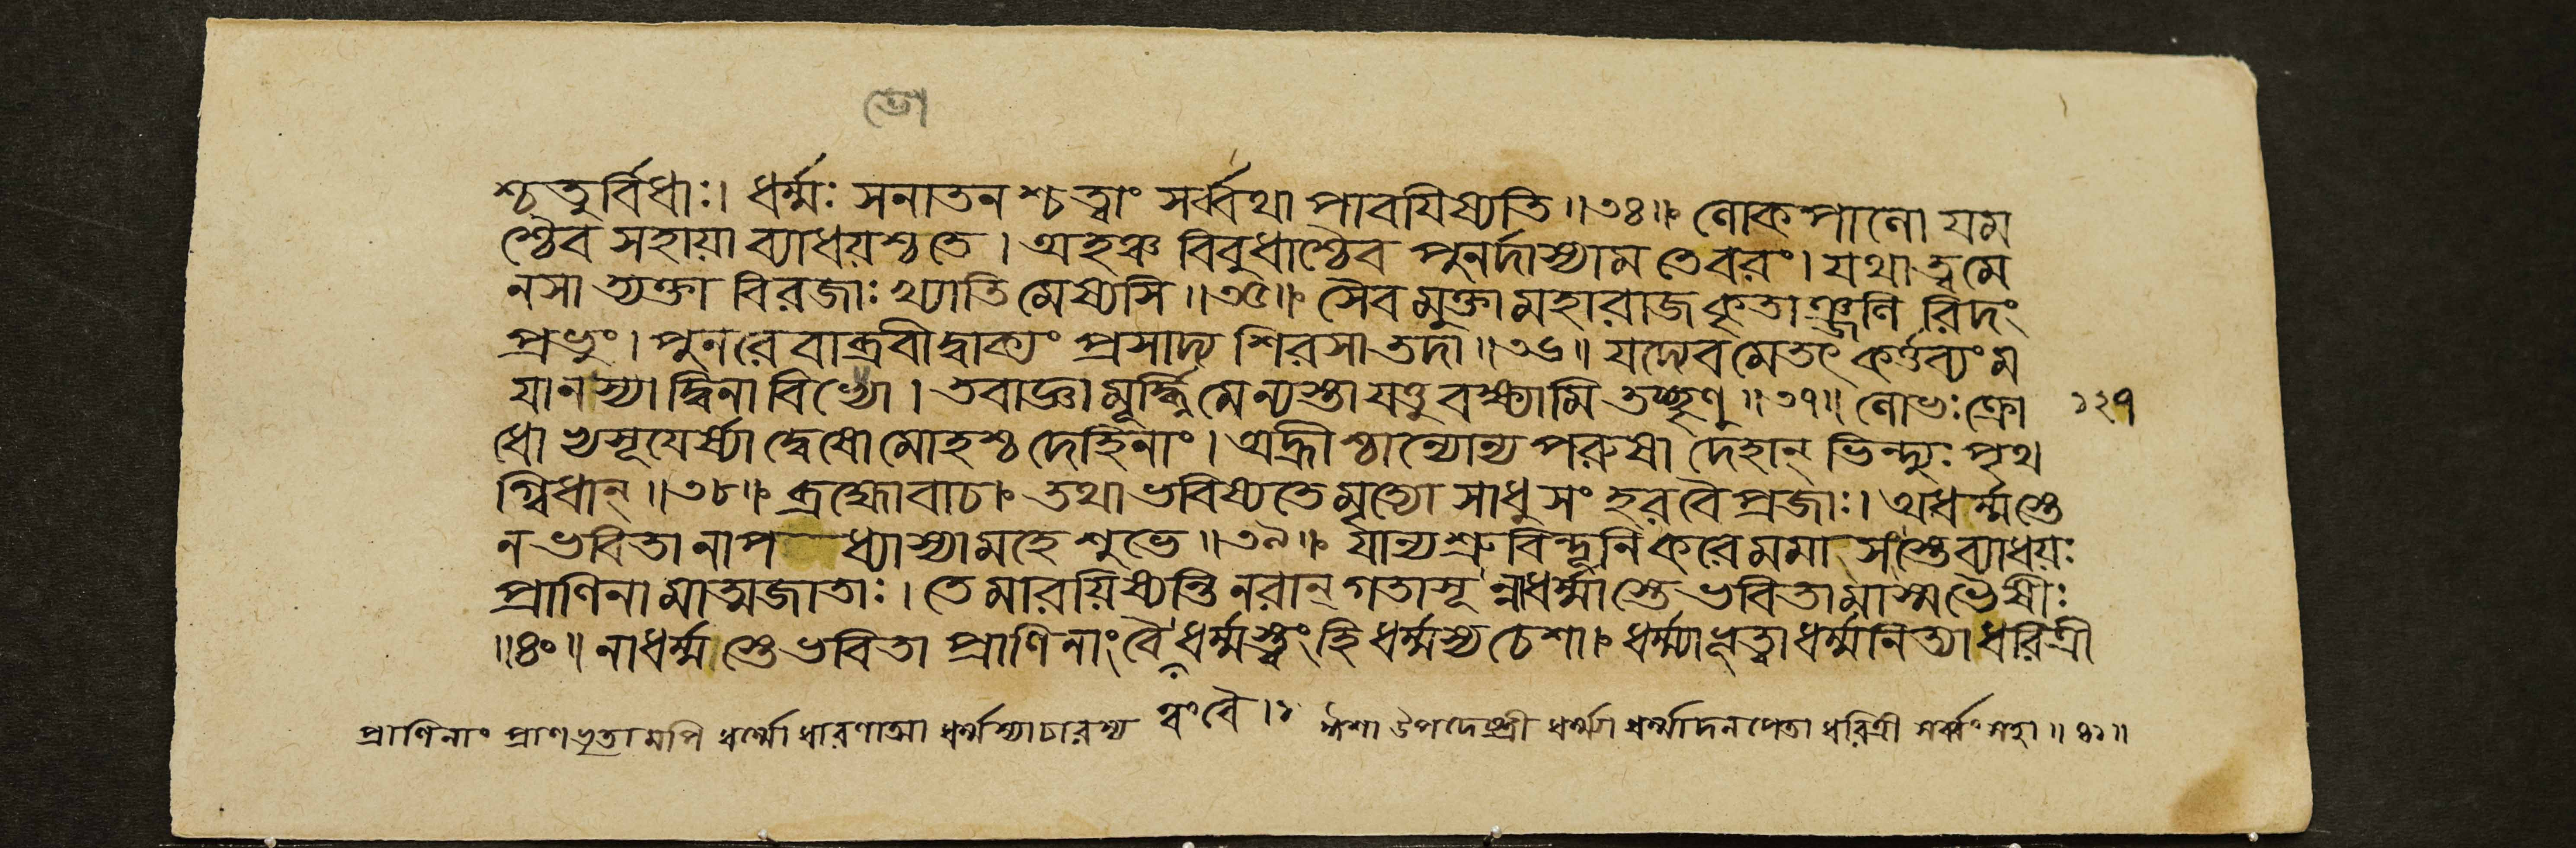 ভো
শ্চতুর্বিধাঃ। ধর্ম্মঃ সনাতনশ্চত্বাং সর্ব্বথা পাবযিষ্যতি॥৩৪॥ লোকপালো যম
শ্চৈব সহায়া ব্যাধয়শ্চতে। অহঞ্চ বিবুধাশ্চৈব পুনর্দাস্যাম তেবরং। যথাত্বমে
নসা ত্যক্তা বিরজাঃ খ্যাতিমেষ্যসি॥৩৫॥ সৈবমুক্তামহারাজকৃতাঞ্জলিরিদং
প্রভুং। পুনরেবাব্রবীদ্বাক্যং প্রসাদ্য শিরসাতদা॥৩৬॥ যদ্যেবমেতৎ কর্ত্তব্যং ম
যানস্যাদ্বিনাবিভো। তবাজ্ঞামূর্দ্ধ্নিমেন্যস্তাযত্তুবক্ষ্যামি তচ্ছৃণু॥৩৭॥ লোভঃক্রো ১২৭
ধোঽভ্যসূযের্ষ্যাদ্বেষোমোহশ্চদেহিনাং। অহ্রীশ্চান্যোন্যপরুষা দেহান্ ভিন্দ্যুঃ পৃথ
গ্বিধান্॥৩৮॥ ব্রহ্মোবাচ॥ তথাভবিষ্যতেমৃত্যো সাধুসংহরবৈপ্রজাঃ। অধর্ম্মস্তে
নভবিতানাপ ধ্যাস্যামহে শুভে॥৩৯॥ যান্যশ্রুবিন্দূনিকরেমমাসংস্তেব্যাধয়ঃ
প্রাণিনামাত্মজাতাঃ। তেমারয়িষ্যন্তিনরান্ গতাসূন্নাধর্ম্মাস্তেভবিতামাস্মভৈষীঃ
॥৪০॥ নাধর্ম্মস্তেভবিতা প্রাণিনাংবৈধর্ম্মস্ত্বংহিধর্ম্মস্যচেশা॥ ধর্ম্ম্যাভূত্বাধর্ম্মনিত্যাধরিত্রী
প্রাণিনাং প্রাণভৃতামপি ধর্ম্মো ধারণাত্মা ধর্ম্মস্যাচারস্য ত্বংবৈ।১ ঈশা উপদেষ্ট্রী ধর্ম্ম্যা ধর্ম্মাদনপেতা ধরিত্রী সর্ব্বংসহা॥৪১॥